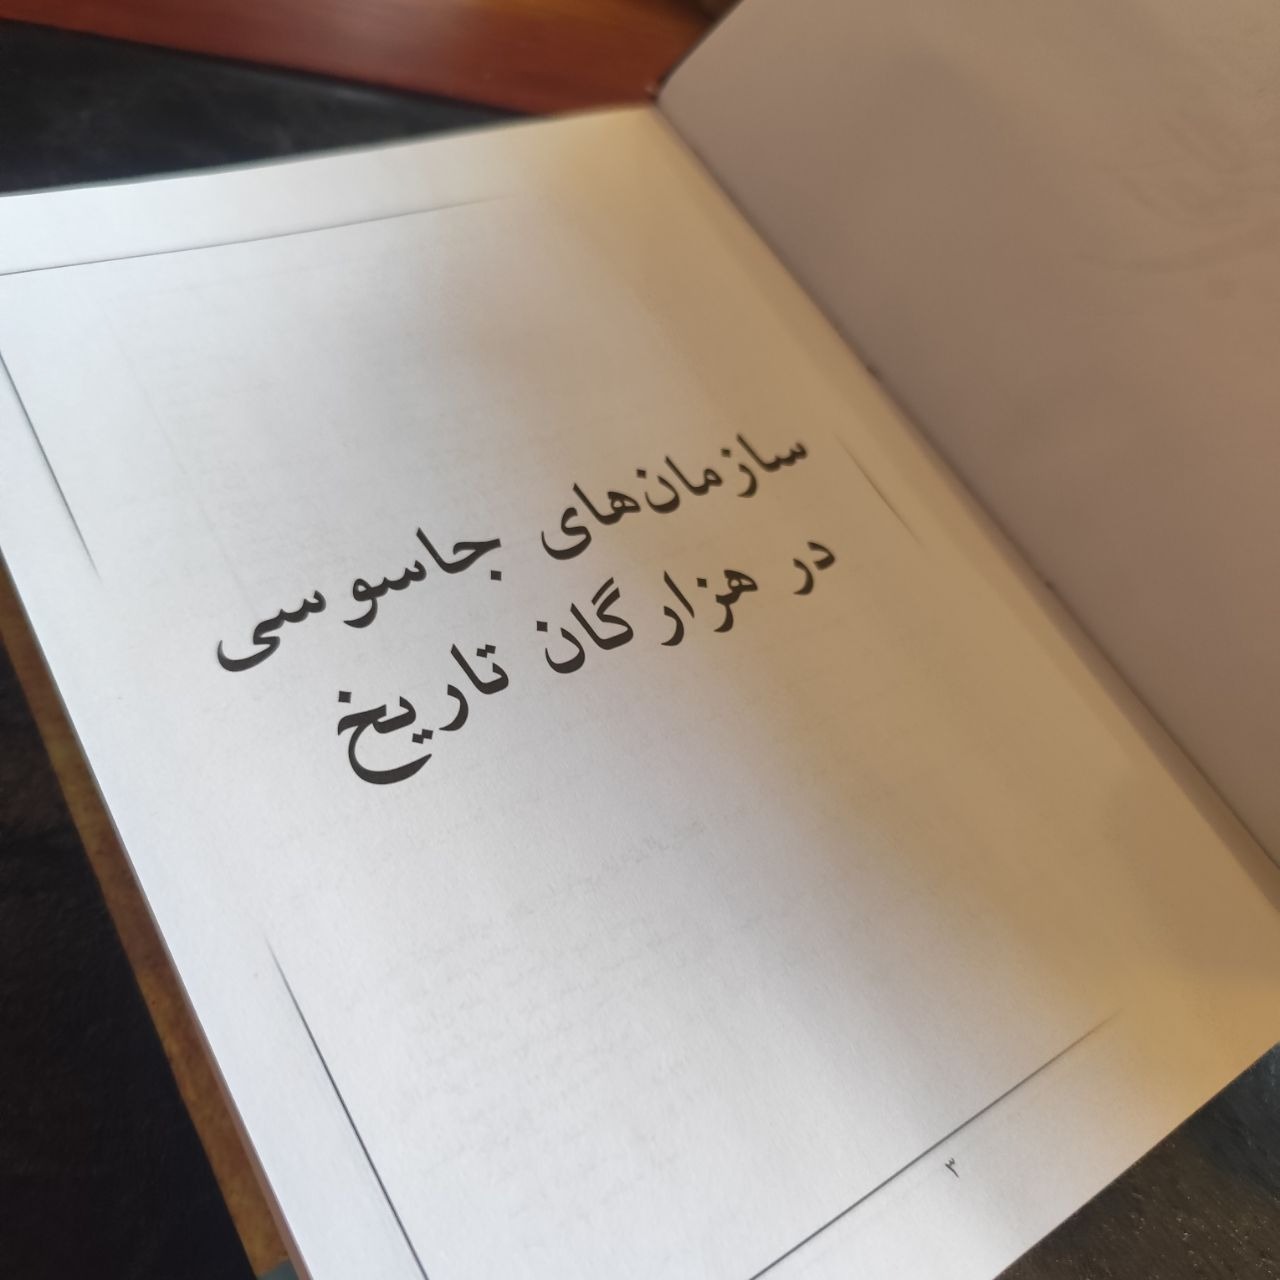 سازمان‌های جاسوسی
در هزارگان تاریخ
۳